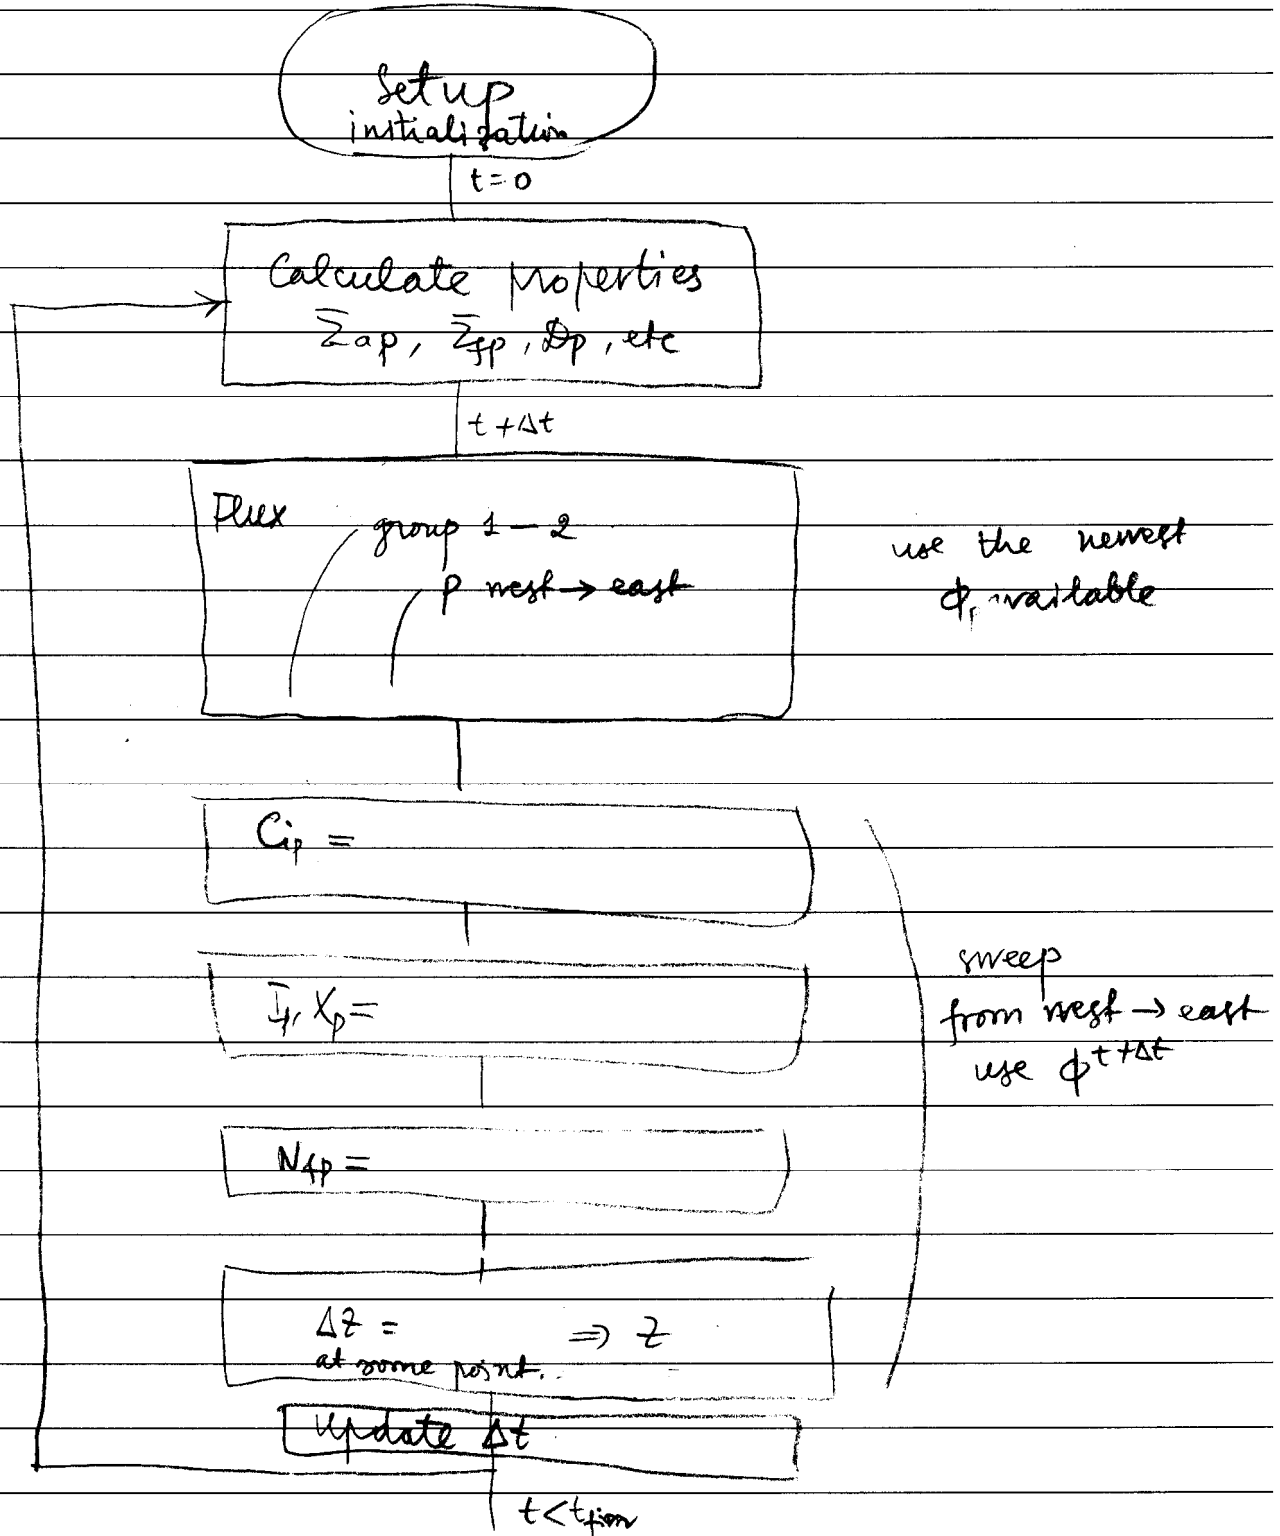 Setup
initialization
t=0
Calculate properties
Σ̄ap, Σ̄fp, Dp, etc
t+Δt
Flux
group 1 – 2
p west → east
use the newest
ϕ, available
Cip =
I, Xp =
Nfp =
sweep
from west → east
use ϕ^t+Δt
ΔZ = ⇒ Z
at some point.
Update Δt
t<tfinal